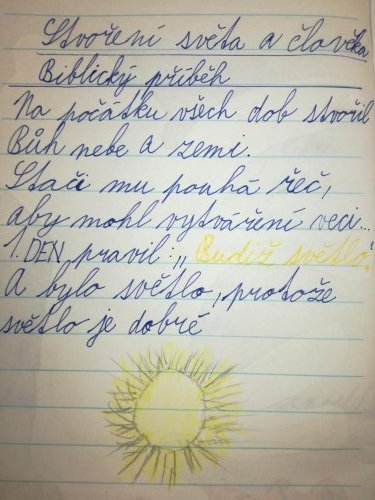 Stvoření světa a člověka
Biblický příběh
Na počátku všech dob stvořil
Bůh nebe a zemi.
Stačí mu pouhá řeč,
aby mohl vytváření veci...
1. DEN pravil: „Budiž světlo."
A bylo světlo, protože
světlo je dobré